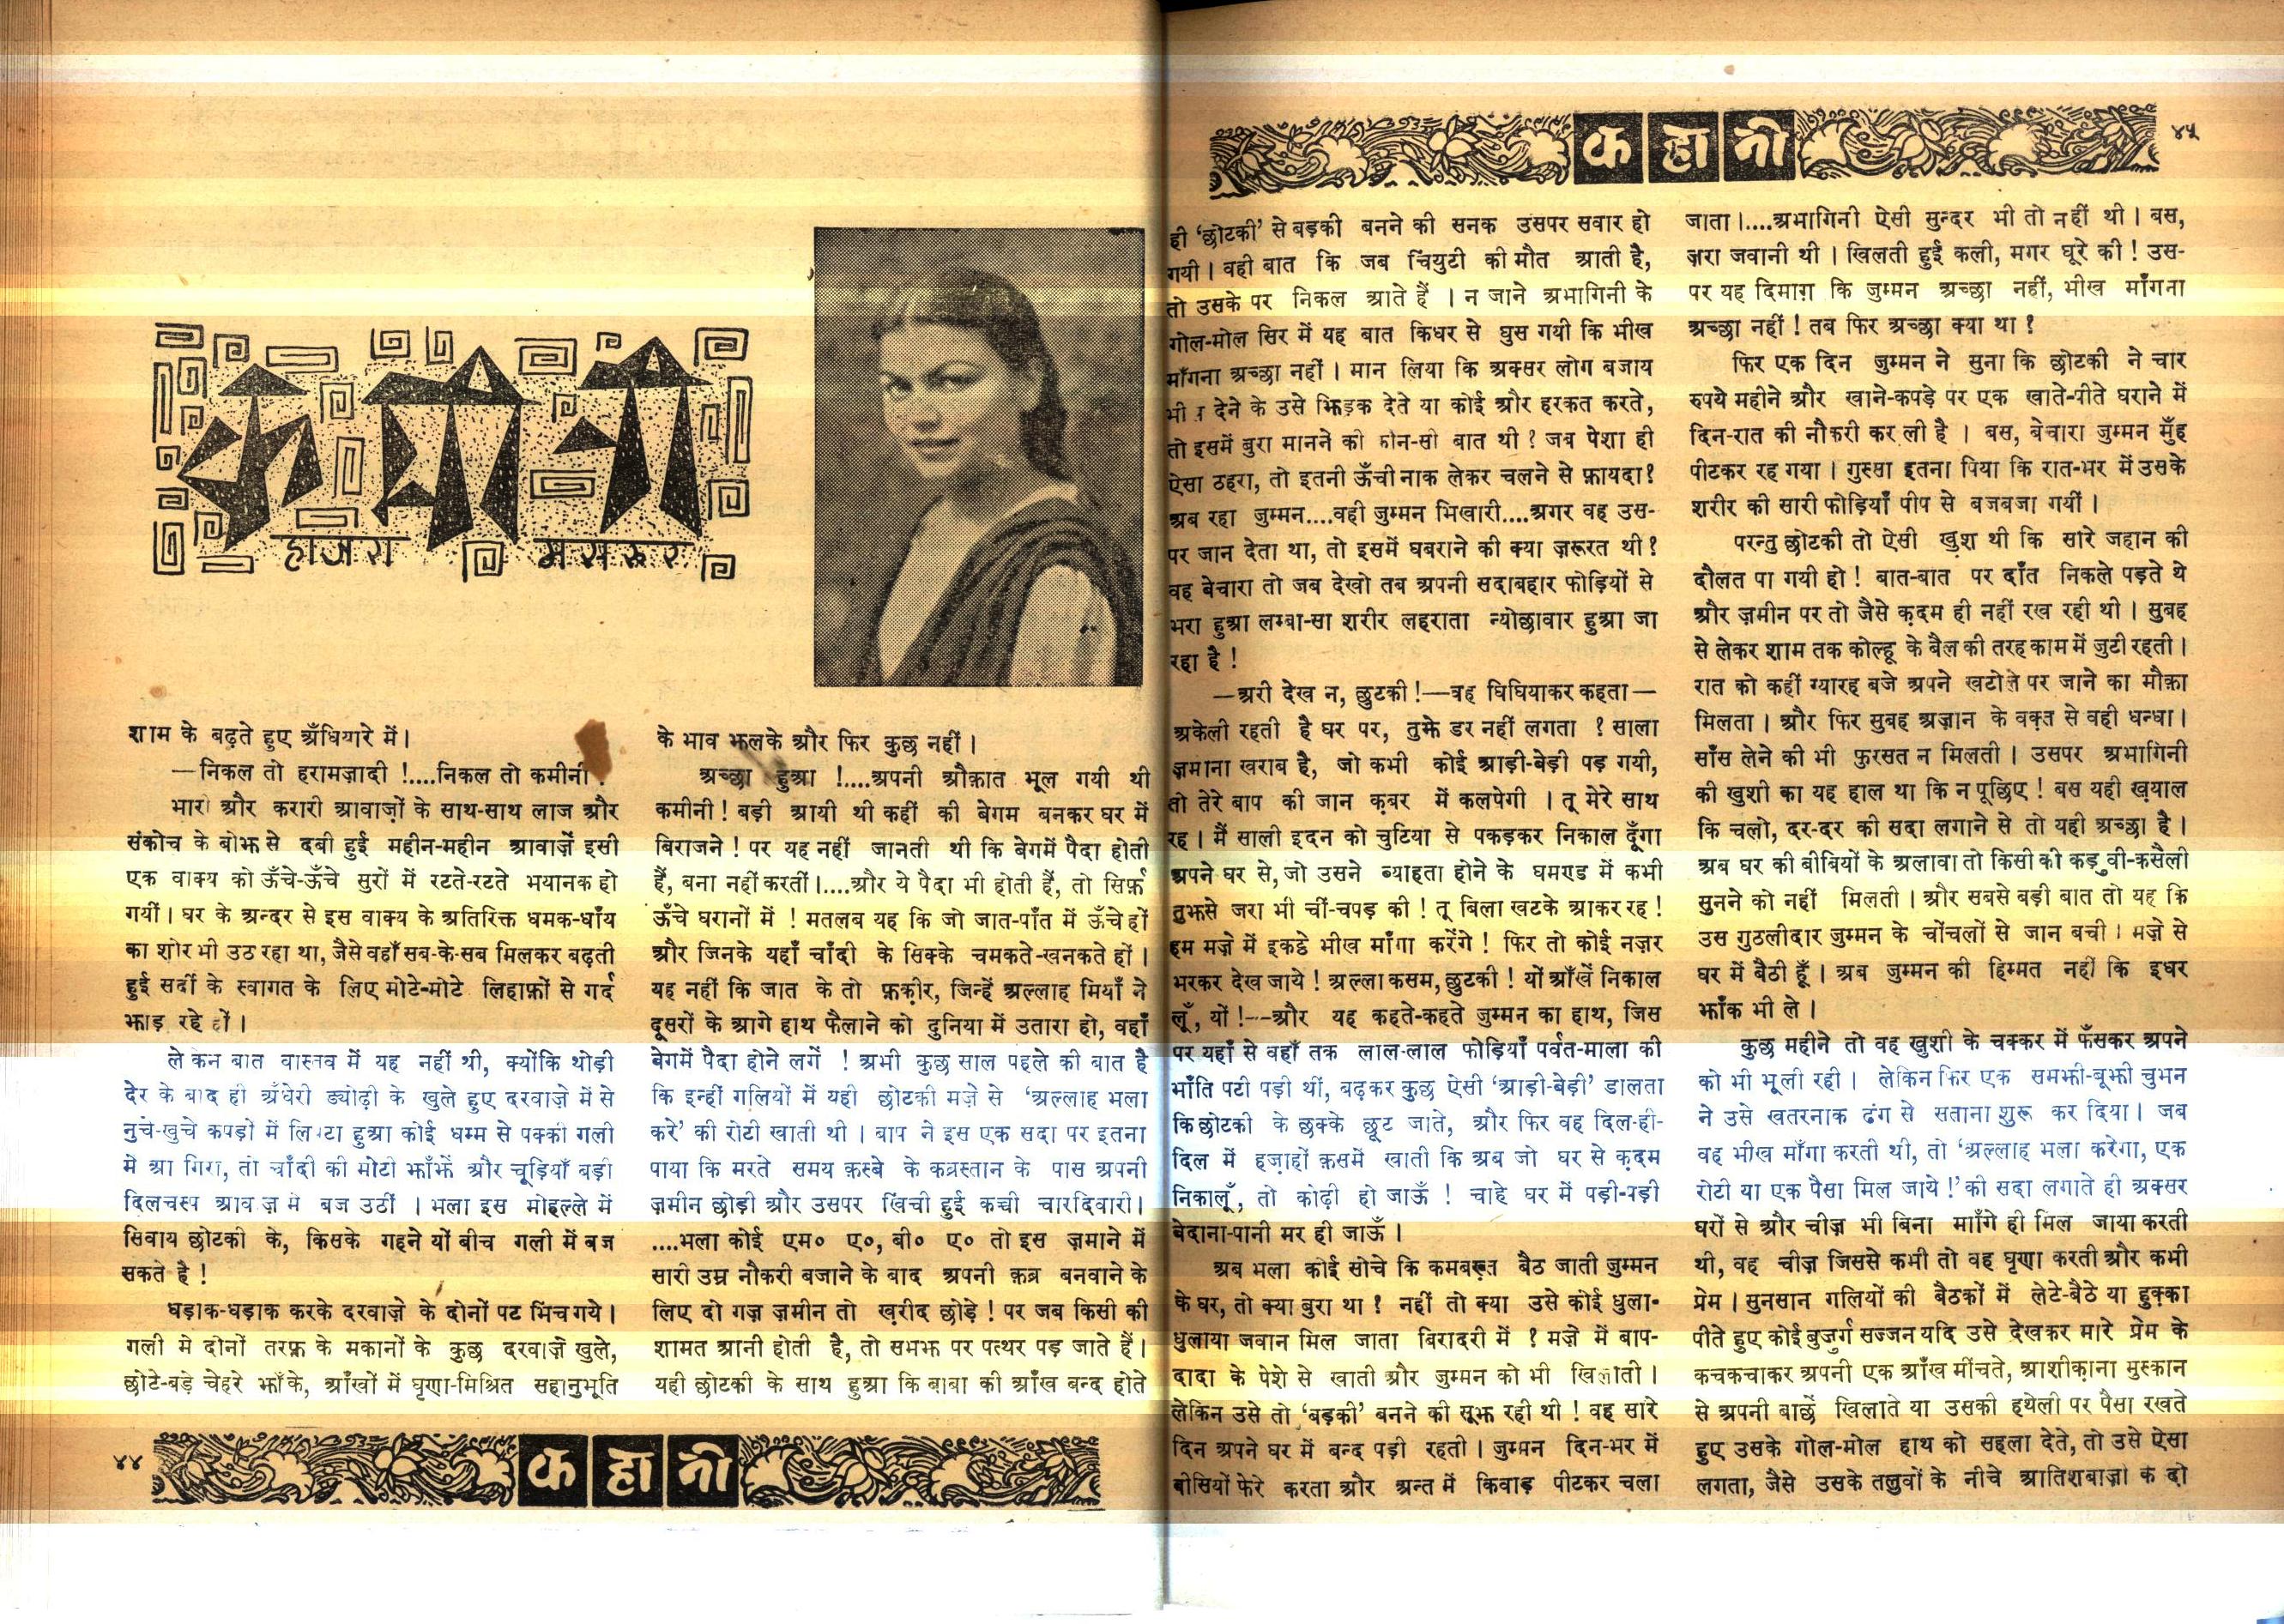 कमीनी
हाजरा मसरूर
शाम के बढ़ते हुए अँधियारे में।
—निकल तो हरामज़ादी !....निकल तो कमीनी
भारी और करारी आवाज़ों के साथ-साथ लाज और
संकोच के बोझ से दबी हुई महीन-महीन आवाज़ें इसी
एक वाक्य को ऊँचे-ऊँचे सुरों में रटते-रटते भयानक हो
गयीं। घर के अन्दर से इस वाक्य के अतिरिक्त धमक-धाँय
का शोर भी उठ रहा था, जैसे वहाँ सब-के-सब मिलकर बढ़ती
हुई सर्दी के स्वागत के लिए मोटे-मोटे लिहाफ़ों से गर्द
झाड़ रहे हों।
लेकिन बात वास्तव में यह नहीं थी, क्योंकि थोड़ी
देर के बाद ही अँधेरी ड्योढ़ी के खुले हुए दरवाज़े में से
नुचे-खुचे कपड़ों में लिपटा हुआ कोई धम्म से पक्की गली
में आ गिरा, तो चाँदी की मोटी झाँझें और चूड़ियाँ बड़ी
दिलचस्प आवाज़ में बज उठीं । भला इस मोहल्ले में
सिवाय छोटकी के, किसके गहने यों बीच गली में बज
सकते है !
धड़ाक-धड़ाक करके दरवाज़े के दोनों पट भिंच गये।
गली मे दोनों तरफ़ के मकानों के कुछ दरवाज़े खुले,
छोटे-बड़े चेहरे झाँके, आँखों में घृणा-मिश्रित सहानुभूति
के भाव झलके और फिर कुछ नहीं।
अच्छा हुआ !....अपनी औक़ात भूल गयी थी
कमीनी! बड़ी आयी थी कहीं की बेगम बनकर घर में
बिराजने! पर यह नहीं जानती थी कि बेगमें पैदा होती
हैं, बना नहीं करतीं।....और ये पैदा भी होती हैं, तो सिर्फ़
ऊँचे घरानों में ! मतलब यह कि जो जात-पाँत में ऊँचे हों
और जिनके यहाँ चाँदी के सिक्के चमकते-खनकते हों।
यह नहीं कि जात के तो फ़क़ीर, जिन्हें अल्लाह मियाँ ने
दूसरों के आगे हाथ फैलाने को दुनिया में उतारा हो, वहाँ
बेगमें पैदा होने लगें ! अभी कुछ साल पहले की बात है
कि इन्हीं गलियों में यही छोटकी मज़े से ‘अल्लाह भला
करे’ की रोटी खाती थी। बाप ने इस एक सदा पर इतना
पाया कि मरते समय क़स्बे के कब्रस्तान के पास अपनी
ज़मीन छोड़ी और उसपर खिंची हुई कच्ची चारदिवारी।
....भला कोई एम० ए०, बी० ए० तो इस ज़माने में
सारी उम्र नौकरी बजाने के बाद अपनी क़ब्र बनवाने के
लिए दो गज़ ज़मीन तो ख़रीद छोड़े! पर जब किसी की
शामत आनी होती है, तो समझ पर पत्थर पड़ जाते हैं।
यही छोटकी के साथ हुआ कि बाबा की आँख बन्द होते
४४
कहानी
कहानी
४५
ही ‘छोटकी’ से बड़की बनने की सनक उसपर सवार हो
गयी। वही बात कि जब चिंयुटी की मौत आती है,
तो उसके पर निकल आते हैं । न जाने अभागिनी के
गोल-मोल सिर में यह बात किधर से घुस गयी कि भीख
माँगना अच्छा नहीं। मान लिया कि अक्सर लोग बजाय
भीख देने के उसे झिड़क देते या कोई और हरकत करते,
तो इसमें बुरा मानने की कौन-सी बात थी? जब पेशा ही
ऐसा ठहरा, तो इतनी ऊँची नाक लेकर चलने से फ़ायदा?
अब रहा जुम्मन....वही जुम्मन भिखारी....अगर वह उस-
पर जान देता था, तो इसमें घबराने की क्या ज़रूरत थी?
वह बेचारा तो जब देखो तब अपनी सदाबहार फोड़ियों से
भरा हुआ लम्बा-सा शरीर लहराता न्योछावार हुआ जा
रहा है !
—अरी देख न, छुटकी !—वह घिघियाकर कहता—
अकेली रहती है घर पर, तुझे डर नहीं लगता ? साला
ज़माना खराब है, जो कभी कोई आड़ी-बेड़ी पड़ गयी,
तो तेरे बाप की जान क़बर में कलपेगी । तू मेरे साथ
रह। मैं साली इदन को चुटिया से पकड़कर निकाल दूँगा
अपने घर से, जो उसने ब्याहता होने के घमण्ड में कभी
तुझसे जरा भी चीं-चपड़ की! तू बिला खटके आकर रह!
हम मज़े में इकट्ठे भीख माँगा करेंगे! फिर तो कोई नज़र
भरकर देख जाये! अल्ला कसम, छुटकी! यों आँखें निकाल
लूँ, यों!--और यह कहते-कहते जुम्मन का हाथ, जिस
पर यहाँ से वहाँ तक लाल-लाल फोड़ियाँ पर्वत-माला की
भाँति पटी पड़ी थीं, बढ़कर कुछ ऐसी ‘आड़ी-बेड़ी’ डालता
कि छोटकी के छक्के छूट जाते, और फिर वह दिल-ही-
दिल में हज़ाहों क़समें खाती कि अब जो घर से क़दम
निकालूँ, तो कोढ़ी हो जाऊँ ! चाहे घर में पड़ी-पड़ी
बेदाना-पानी मर ही जाऊँ।
अब भला कोई सोचे कि कमबख़्त बैठ जाती जुम्मन
के घर, तो क्या बुरा था? नहीं तो क्या उसे कोई धुला-
धुलाया जवान मिल जाता बिरादरी में ? मज़े में बाप-
दादा के पेशे से खाती और जुम्मन को भी खिलाती।
लेकिन उसे तो ‘बड़की’ बनने की सूझ रही थी! वह सारे
दिन अपने घर में बन्द पड़ी रहती। जुम्मन दिन-भर में
बीसियों फेरे करता और अन्त में किवाड़ पीटकर चला
जाता।....अभागिनी ऐसी सुन्दर भी तो नहीं थी। बस,
ज़रा जवानी थी। खिलती हुई कली, मगर घूरे की! उस-
पर यह दिमाग़ कि जुम्मन अच्छा नहीं, भीख माँगना
अच्छा नहीं! तब फिर अच्छा क्या था?
फिर एक दिन जुम्मन ने सुना कि छोटकी ने चार
रुपये महीने और खाने-कपड़े पर एक खाते-पीते घराने में
दिन-रात की नौकरी कर ली है । बस, बेचारा जुम्मन मुँह
पीटकर रह गया। गुस्सा इतना पिया कि रात-भर में उसके
शरीर की सारी फोड़ियाँ पीप से बजबजा गयीं।
परन्तु छोटकी तो ऐसी खुश थी कि सारे जहान की
दौलत पा गयी हो! बात-बात पर दाँत निकले पड़ते थे
और ज़मीन पर तो जैसे क़दम ही नहीं रख रही थी। सुबह
से लेकर शाम तक कोल्हू के बैल की तरह काम में जुटी रहती।
रात को कहीं ग्यारह बजे अपने खटोले पर जाने का मौक़ा
मिलता। और फिर सुबह अज़ान के वक़्त से वही धन्धा।
साँस लेने की भी फुरसत न मिलती। उसपर अभागिनी
की खुशी का यह हाल था कि न पूछिए! बस यही ख़याल
कि चलो, दर-दर की सदा लगाने से तो यही अच्छा है।
अब घर की बीबियों के अलावा तो किसी की कड़ुवी-कसैली
सुनने को नहीं मिलती। और सबसे बड़ी बात तो यह कि
उस गुठलीदार जुम्मन के चोंचलों से जान बची। मज़े से
घर में बैठी हूँ। अब जुम्मन की हिम्मत नहीं कि इधर
झाँक भी ले।
कुछ महीने तो वह खुशी के चक्कर में फँसकर अपने
को भी भूली रही। लेकिन फिर एक समझी-बूझी चुभन
ने उसे खतरनाक ढंग से सताना शुरू कर दिया। जब
वह भीख माँगा करती थी, तो ‘अल्लाह भला करेगा, एक
रोटी या एक पैसा मिल जाये!’ की सदा लगाते ही अक्सर
घरों से और चीज़ भी बिना माँगे ही मिल जाया करती
थी, वह चीज़ जिससे कभी तो वह घृणा करती और कभी
प्रेम। सुनसान गलियों की बैठकों में लेटे-बैठे या हुक्का
पीते हुए कोई बुजुर्ग सज्जन यदि उसे देखकर मारे प्रेम के
कचकचाकर अपनी एक आँख मींचते, आशीक़ाना मुस्कान
से अपनी बाछें खिलाते या उसकी हथेली पर पैसा रखते
हुए उसके गोल-मोल हाथ को सहला देते, तो उसे ऐसा
लगता, जैसे उसके तलुवों के नीचे आतिशबाज़ी के दो